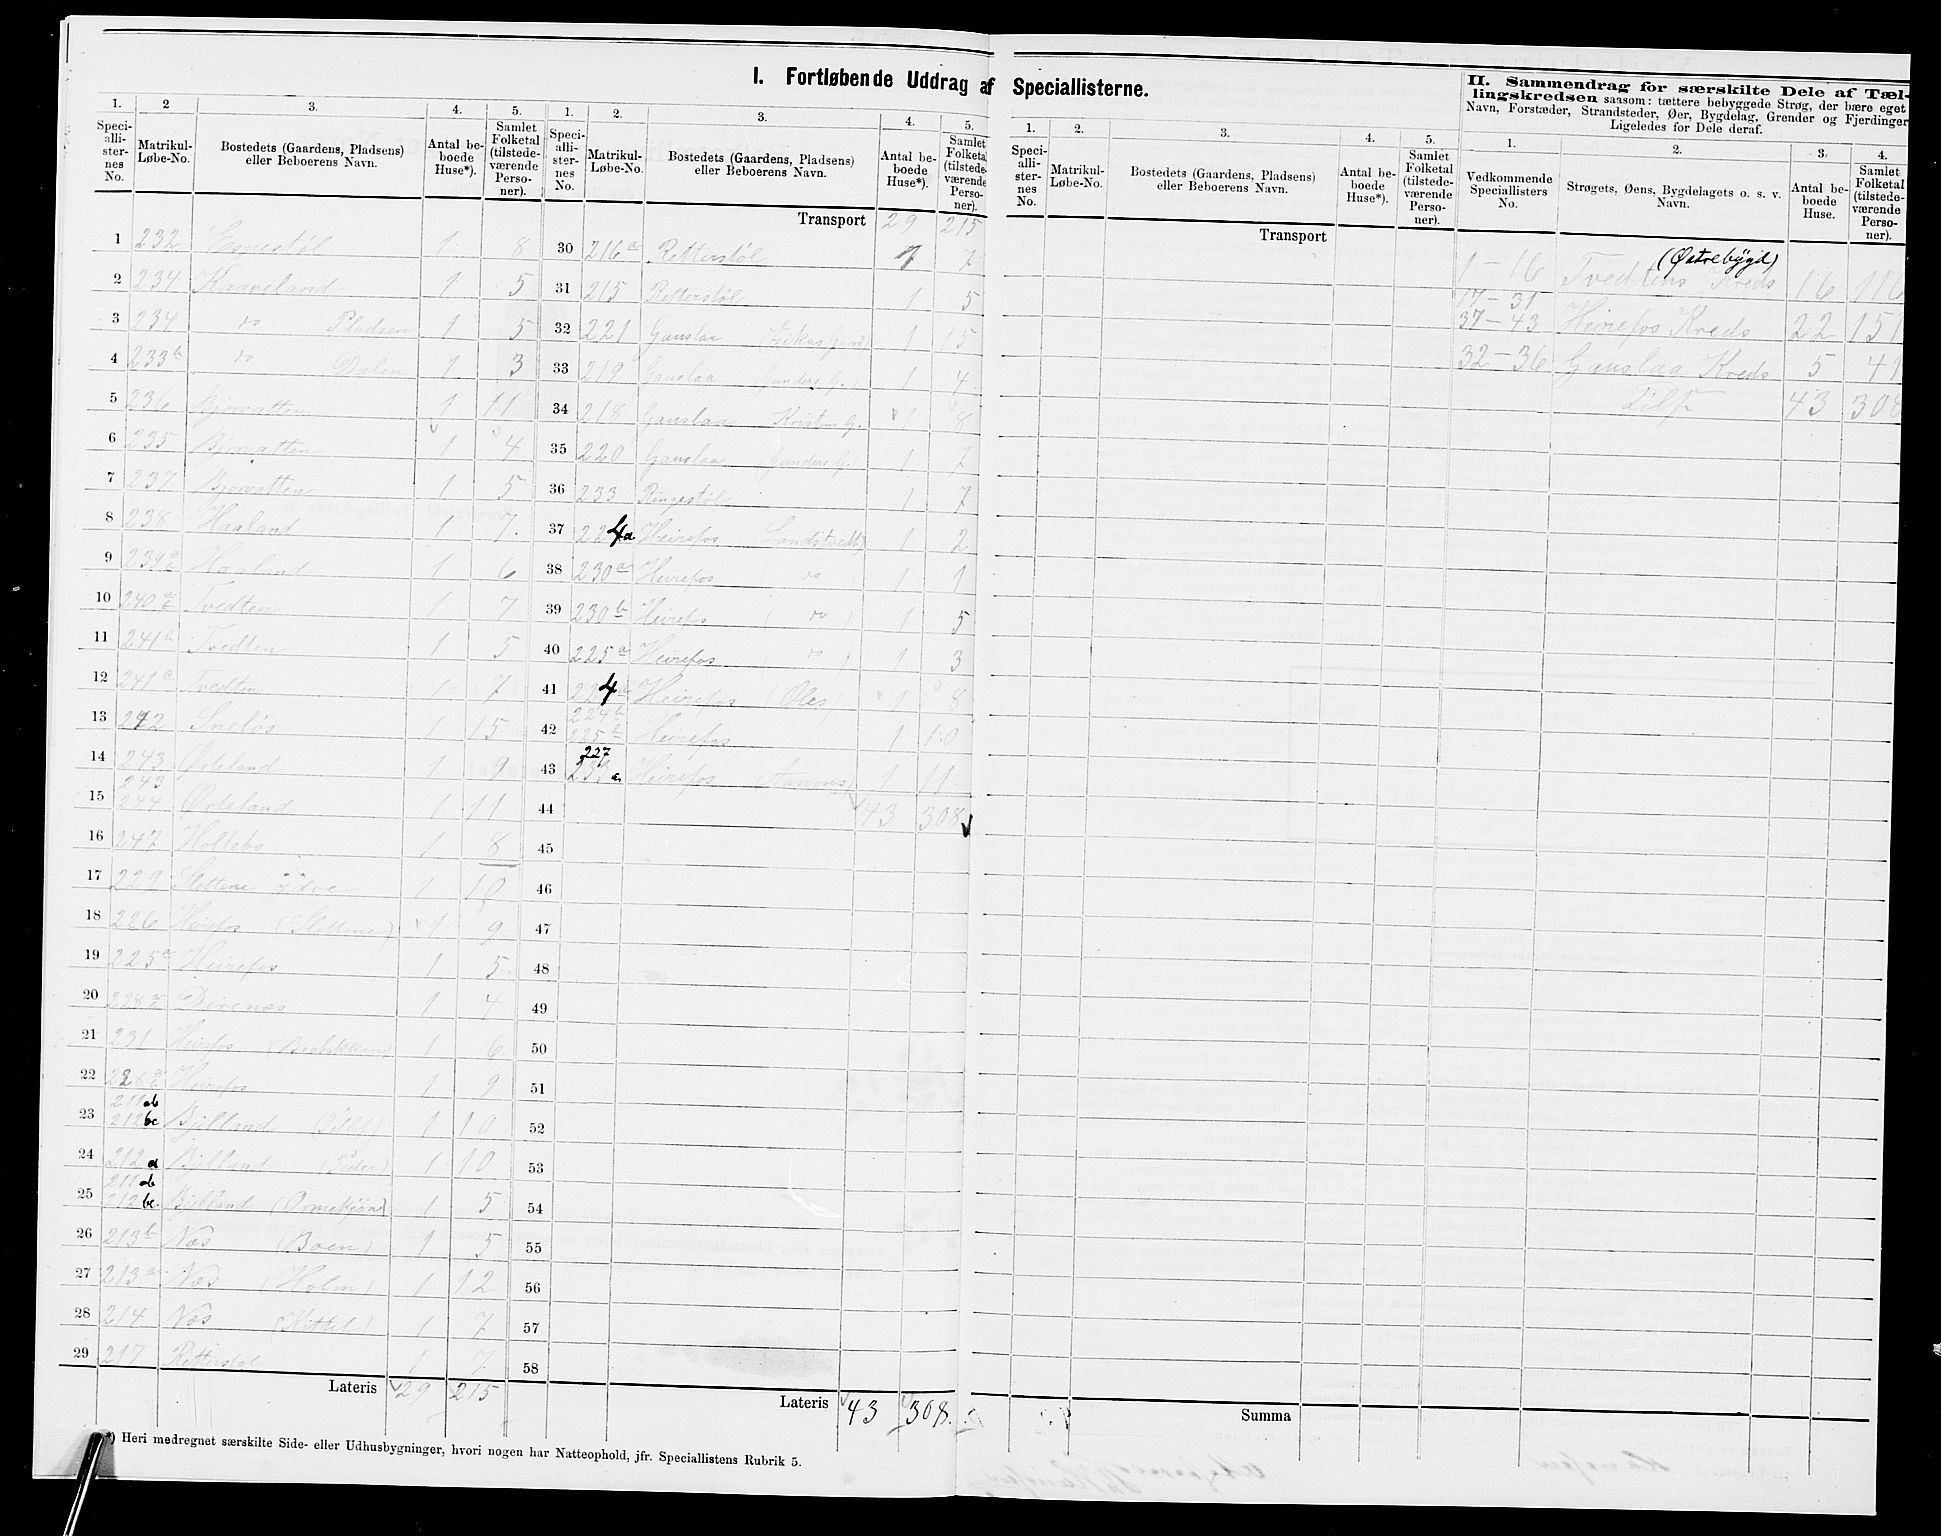 I. Fortløbende Uddrag af Speciallisterne.
1. 2 3. 4. 5.
Speciallisternes No. Matrikul-Løbe-No. Bostedets (Gaardens, Pladsens) eller Beboerens Navn. Antal beboede Huse*). Samlet Folketal (tilstedeværende Personer).
1 232 Egestøl 1 8
2 234 Kaaveland 1 5
3 234 do Pladsen 1 5
4 233b do Dalen 1 3
5 236 Bjorvatten 1 11
6 235 Bjorvatten 1 4
7 237 Bjorvatten 1 5
8 238 Haaland 1 7
9 239 Haaland 1 6
10 240 Tvedten 1 7
11 241b Tvedten 1 5
12 241a Tvedten 1 7
13 242 1 15
14 243 Øvleland 1 9
15 243 244 Øvleland 1 11
16 247 Holtebo 1 8
17 229 Slettene ydre 1 10
18 226 Heirefos (Slettene) 1 9
19 225a Heirefos 1 5
20 228 Direnæs 1 4
21 231 Heirefos 1 6
22 228 Heirefos 1 9
23 211ab 212bc Bjelland 1 10
24 212a Bjelland (Peder) 1 10
25 211ab 212bc. Bjelland 1 5
26 213b Næs (Boen) 1 5
27 213a Næs (Holm) 1 12
28 214 Næs (Kittel) 1 7
29 217 Retterstøl 1 7
Lateris 29 215
*) Heri medregnet særskilte Side- eller Udhusbygninger, hvori nogen har Natteophold, jfr. Speciallistens Rubrik 5.
1. 2. 3. 4. 5.
Speciallisternes No. Matrikul-Løbe-No. Bostedets (Gaardens, Pladsens) eller Beboerens Navn. Antal beboede Huse*). Samlet Folketal (tilstedeværende Personer).
Transport 29 215
30 216a Retterstøl 1 7
31 215 Retterstøl 1 5
32 221 Gauslaa 1 15
33 219 Gauslaa (Gunders G.) 1 4
34 218 Gauslaa Kristens G. 1 8
35 220 Gauslaa (Gunders G.) 1 7
36 233 Ringestøl 1 7
37 224a Heirefos (Landstvedt) 1 2
38 230a Heirefos do 1 1
39 230b Heirefos ( do ) 1 5
40 225a Heirefos ( do ) 1 3
41 224 Heirefos (Oles) 1 8
42 224b 225b Heirefos 1 10
43 227 a Heirefos 1 11
44 43 308
45
46
47
48
49
50
51
52
53
54
55
56
57
58
Lateris 43 308.
1. 2. 3. 4. 5.
Speciallisternes No. Matrikul-Løbe-No. Bostedets (Gaardens, Pladsens) eller Beboerens Navn. Antal beboede Huse*). Samlet Folketal (tilstedeværende Personer).
Transport
Summa
II. Sammendrag for særskilte Dele af Tællingskredsen saasom: tættere bebyggede Strøg, der bære eget Navn, Forstæder, Strandsteder, Øer, Bygdelag, Grender og Fjerdinger. Ligeledes for Dele deraf.
1. 2. 3. 4.
Vedkommende Speciallisters No. Strøgets, Øens, Bygdelagets o. s. v. Navn. Antal beboede Huse. Samlet Folketal (tilstedeværende Personer).
(Østrebygd)
1-16 Tvedtens Kreds 16 116
17-31
37-43 Heirefos Kreds 22 151
32-36 Gauslaa Kreds 5 41
Tils. 43 308